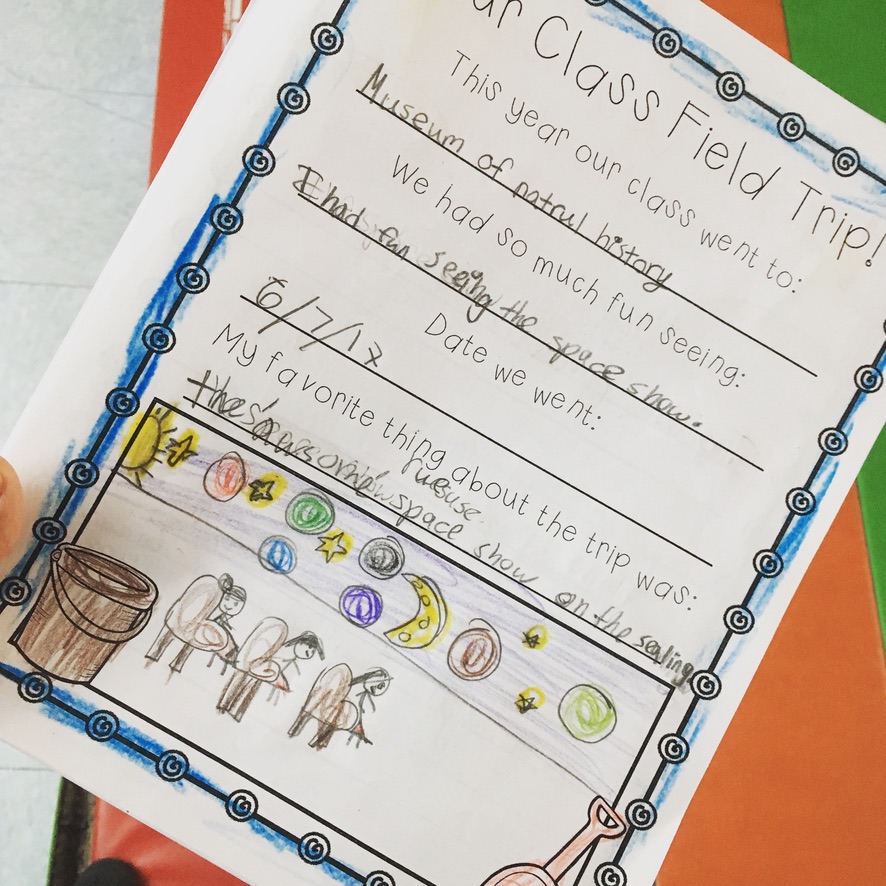 ur Class Field Trip!
This year our class went to:
Museum of natrul history
We had so much fun seeing:
I had fun seeing the space show.
Date we went:
6/7/17
My favorite thing about the trip was:
the awsome space show on the sealing.